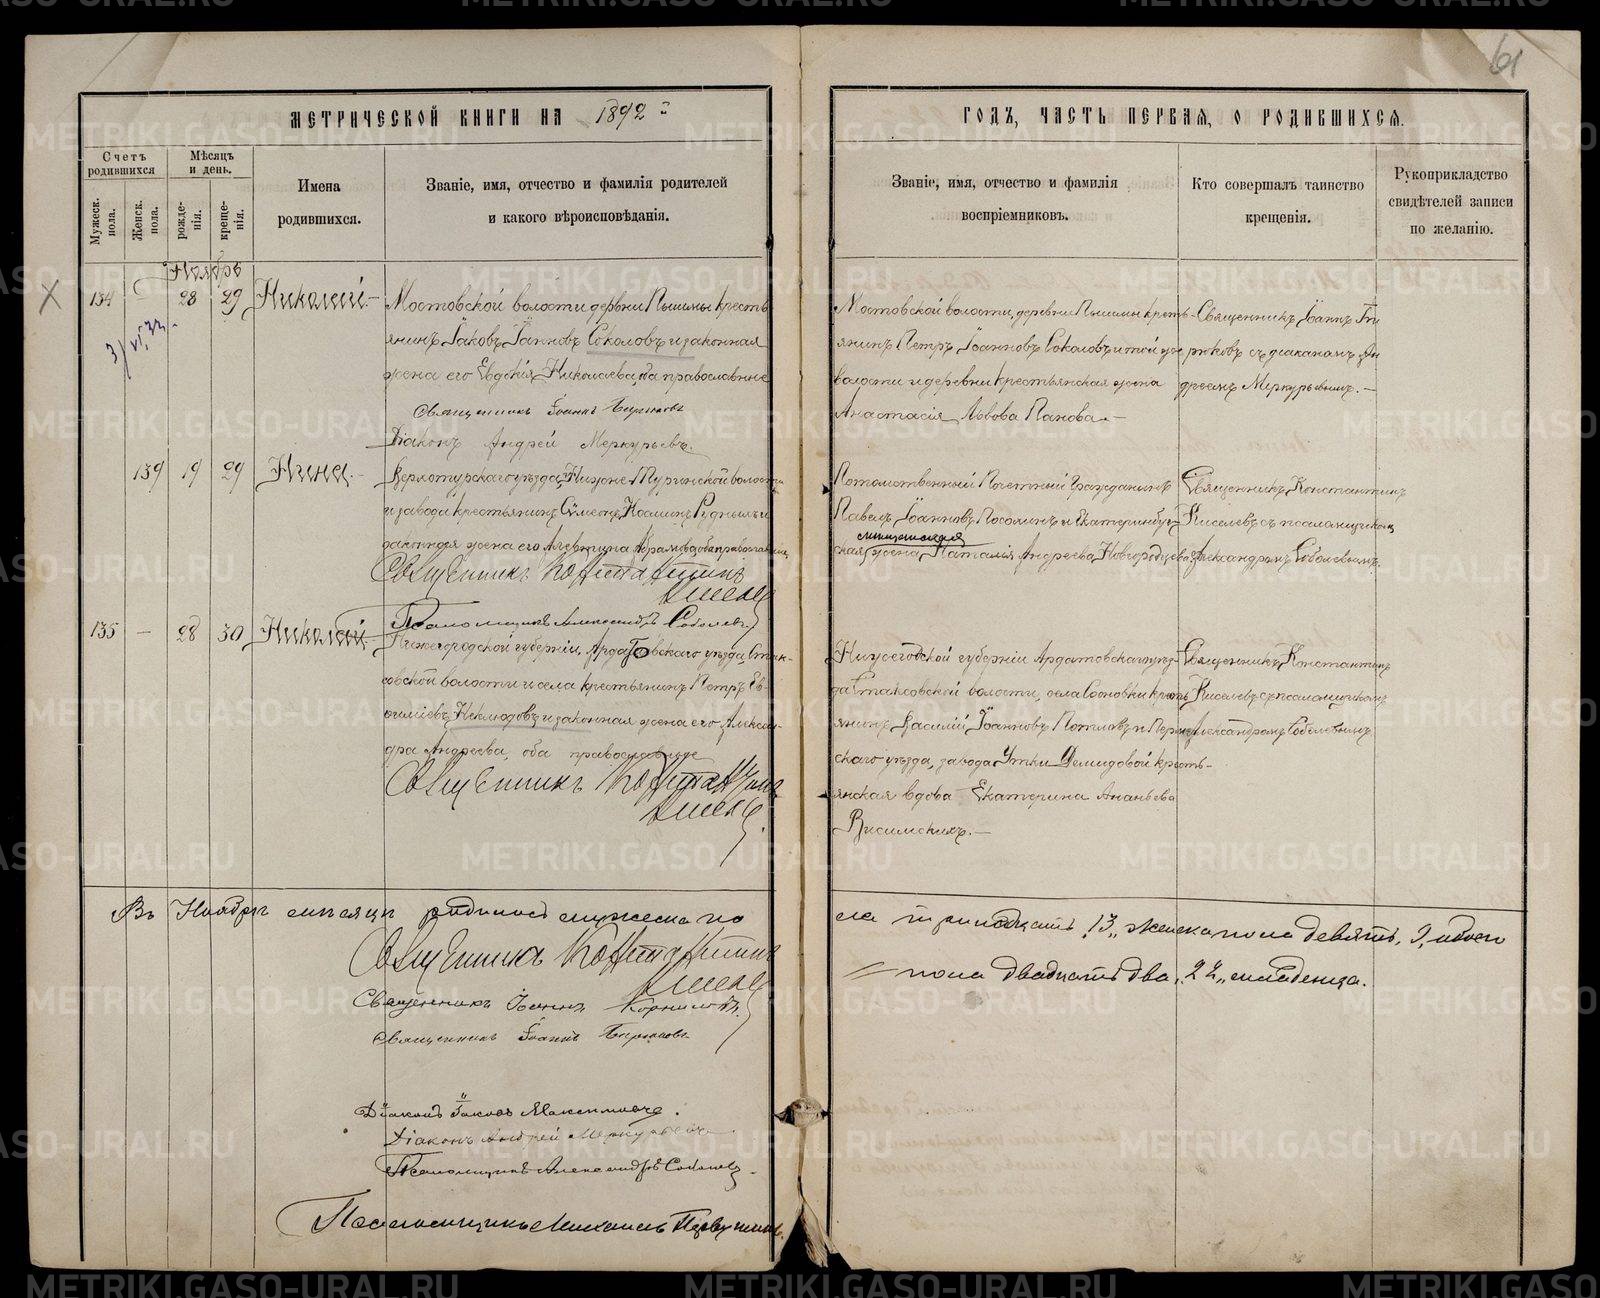 61
МЕТРИЧЕСКОЙ КНИГИ НА 1892 ГОДЪ, ЧАСТЬ ПЕРВАЯ, О РОДИВШИХСЯ.
Счетъ родившихся
Мужеск. пола.
Женск. пола.
Мѣсяцъ и день.
рожде-нія.
креще-нія.
Имена родившихся.
Званіе, имя, отчество и фамилія родителей
и какого вѣроисповѣданія.
Званіе, имя, отчество и фамилія
воспріемниковъ.
Кто совершалъ таинство
крещенія.
Рукоприкладство
свидѣтелей записи
по желанію.
Ноябрь
134 28 29 Николай
Мостовской волости деревни Пышмы кресть
янинъ Іаковъ Іоанновъ Соколовъ и законная
жена его Евдокія Николаева, оба православные
Священникъ Іоаннъ Бирюковъ
Діаконъ Андрей Меркурьевъ.
Мостовской волости, деревни Пышмы кресть-
янинъ Петръ Іоанновъ Соколовъ и той же
волости и деревни крестьянская жена
Анастасія Львова Панова.
Священникъ Іоаннъ Би
рюковъ съ діакономъ Ан
дреемъ Меркурьевымъ.
139 19 29 Нина
Верхотурскаго уѣзда, Нижне Туринской волости
и завода крестьянинъ Сѵмеонъ
законная жена его Абрамова, оба православные
Священникъ Константинъ
Киселевъ
Псаломщикъ Александръ Соболевъ
Потомственный Почетный Гражданинъ
Павелъ Іоанновъ и Екатеринбург
мѣщанская
ская жена Наталія Андреева Новгородцева
Священникъ Константинъ
Киселевъ съ псаломщикомъ
Александромъ Соболевымъ.
135 — 28 30 Николай
Нижегородской губерніи, Ардатовскаго уѣзда, Стек-
совской волости и села крестьянинъ Петръ Ев-
ѳиміевъ Неклюдовъ и законная жена его Алексан-
дра Андреева, оба православные
Священникъ Константинъ
Киселевъ
Нижегодской губерніи Ардатовскаго уѣз-
да волости, села кресть
янинъ Василій Іоанновъ и Перм
скаго уѣзда, завода Утки Демидовой кресть-
янская вдова Екатерина Ананьева
Висимскихъ.
Священникъ Константинъ
Киселевъ съ псаломщикомъ
Александромъ Соболевымъ
Въ Ноябрѣ мѣсяцѣ родилось мужеска по
ла тринадцать „13„ женска пола девять, 9, обоего
пола двадцать два, „22„ младенца.
Священникъ Константинъ
Киселевъ
Священникъ Іоаннъ Корниловъ.
Священникъ Іоаннъ Бирюковъ
Діаконъ Іаковъ Максимовъ.
Діаконъ Андрей Меркурьевъ
Псаломщикъ Александръ Соболевъ.
Псаломщикъ Михаилъ Первушинъ.
METRIKI.GASO-URAL.RU